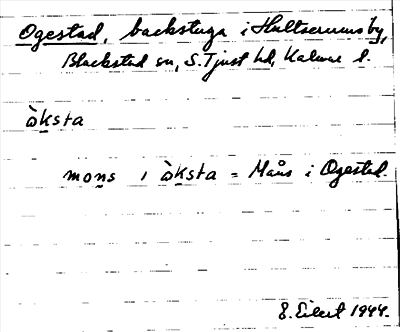 Ogestad, backstuga i Hultserums by,
Blackstad sn, S. Tjust hd, Kalmar l.
òksta
mons i òksta = Måns i Ogestad.
E. Eilert 1944.